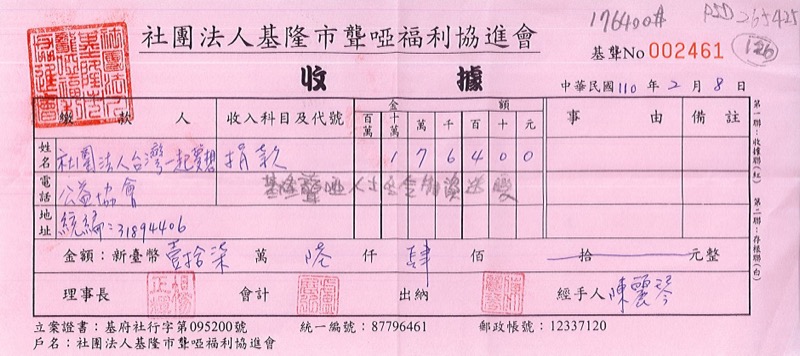 176400# PSD 265425
社團法人基隆市聾啞福利協進會
基聾No 002461 126
收據
中華民國 110 年 2 月 8 日
繳款人 收入科目及代號 金額 事由 備註
百萬 十萬 萬 千 百 十 元
姓名 社團法人台灣一起夢想 捐款 1 7 6 4 0 0
電話 公益協會
基隆聾啞人士
地址 統編:31894406
金額:新臺幣 壹拾柒 萬 陸 仟 肆 佰 拾 元整
理事長 會計 出納 經手人 陳麗琴
立案證書:基府社行字第095200號 統一編號:87796461 郵政帳號:12337120
戶名:社團法人基隆市聾啞福利協進會
第一聯:收據聯(紅)
第二聯:存根聯(白)